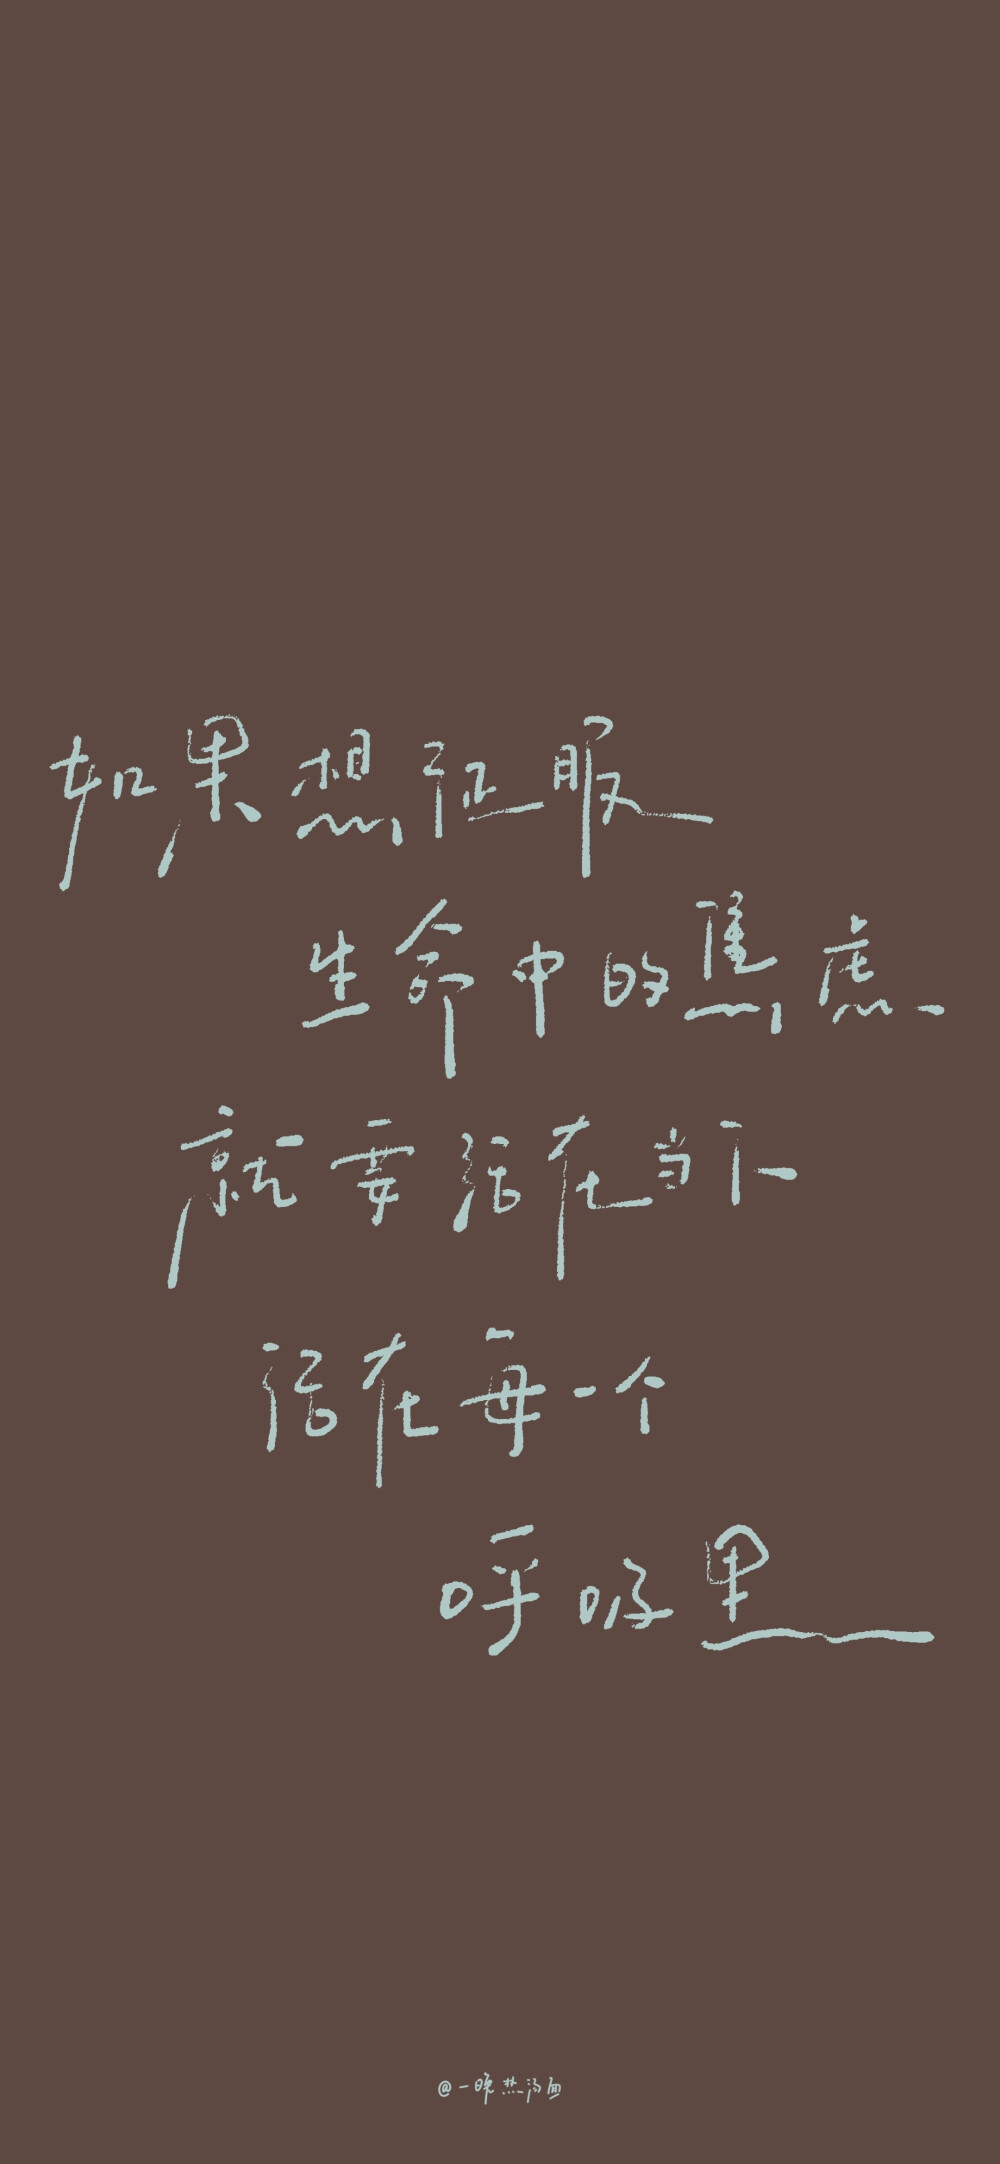 如果想征服
生命中的焦虑
就要活在当下
活在每一个
呼吸里
@一晚热汤面